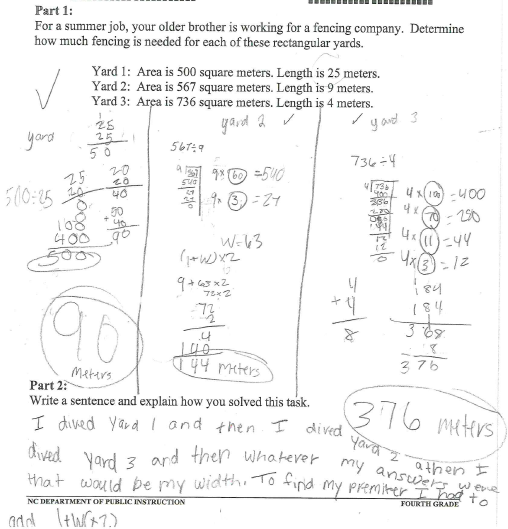 Part 1:
For a summer job, your older brother is working for a fencing company. Determine
how much fencing is needed for each of these rectangular yards.
Yard 1: Area is 500 square meters. Length is 25 meters.
Yard 2: Area is 567 square meters. Length is 9 meters.
Yard 3: Area is 736 square meters. Length is 4 meters.
yard
25
25
50
500÷25
25
20
0
100
400
500
20
20
40
50
+ 40
90
90
meters
yard 2
567÷9
9×60=540
9×3=27
W=63
(l+w)×2
9+63×2
72×2
72
2
4
140
144 meters
yard 3
736÷4
4×100=400
4×70=280
4×11=44
4×3=12
4
+4
8
184
184
368
8
376
376 meters
Part 2:
Write a sentence and explain how you solved this task.
I dived Yard 1 and then I dived
Yard 2 athen I
dived Yard 3 and then whatever my answers were
that would be my width. To find my premiter I had to
NC DEPARTMENT OF PUBLIC INSTRUCTION FOURTH GRADE
add l+W(×2)